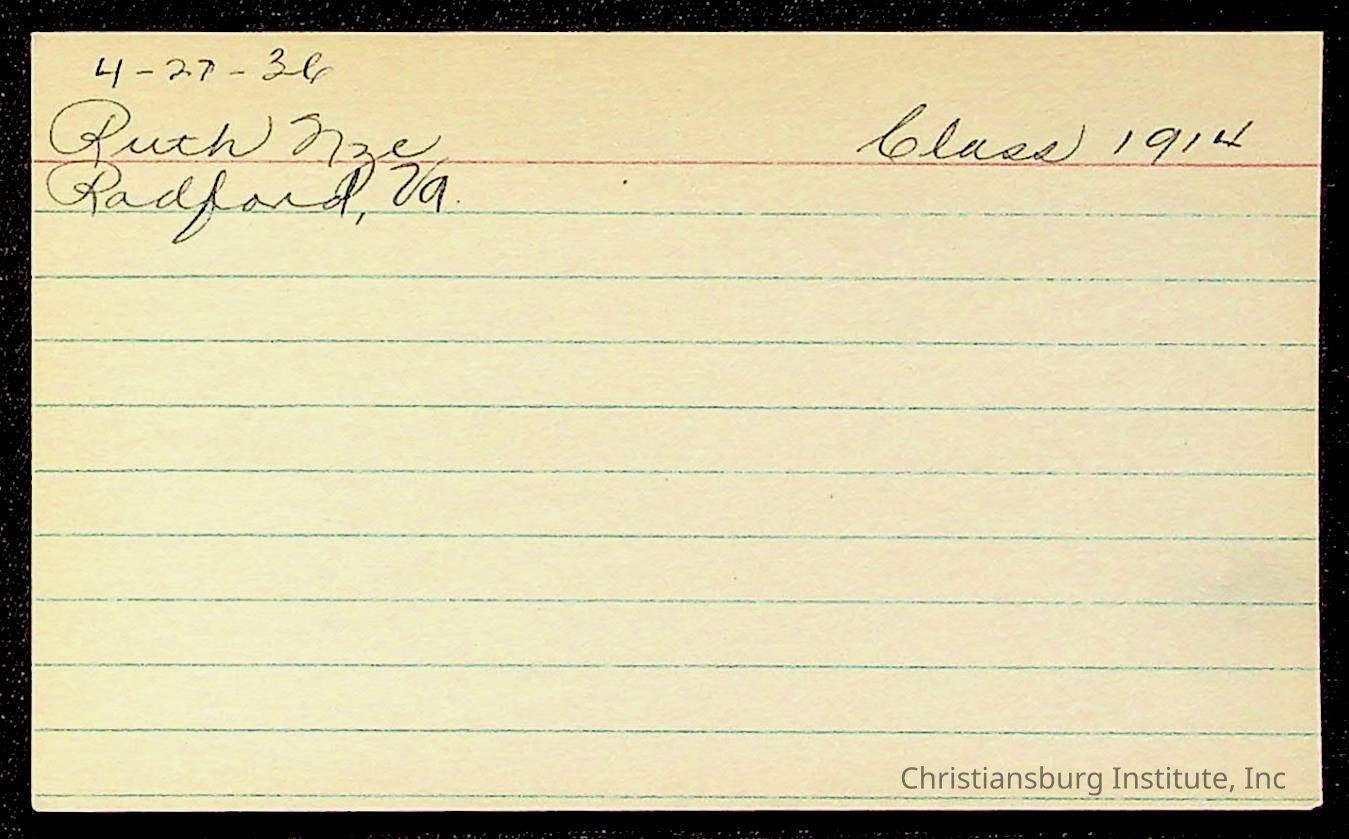 4-27-36
Ruth Nye Class 1914
Radford, Va.
Christiansburg Institute, Inc